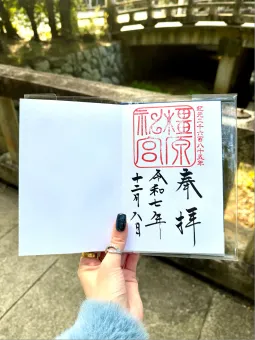 紀元二千六百八十五年
奉拝
橿原
神宮
令和七年
十二月八日